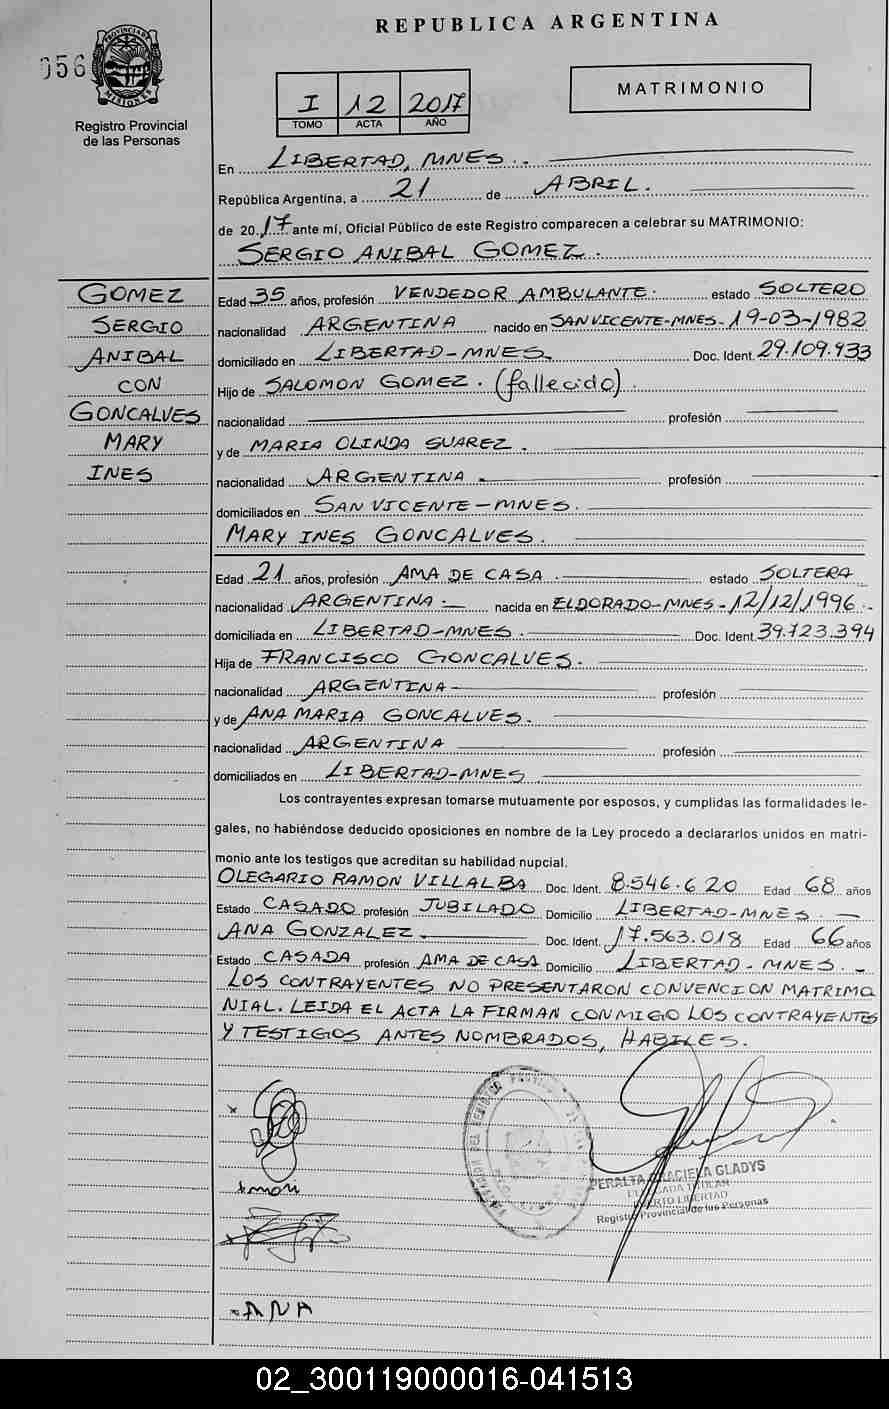 REPUBLICA ARGENTINA
056
PROVINCIA DE MISIONES
Registro Provincial
de las Personas
I 12 2017
TOMO ACTA AÑO
MATRIMONIO
En LIBERTAD, MNES.
República Argentina, a 21 de ABRIL.
de 2017 ante mí, Oficial Público de este Registro comparecen a celebrar su MATRIMONIO:
SERGIO ANIBAL GOMEZ.
GOMEZ
SERGIO
ANIBAL
CON
GONCALVES
MARY
INES
Edad 35 años, profesión VENDEDOR AMBULANTE. estado SOLTERO
nacionalidad ARGENTINA nacido en SAN VICENTE-MNES-19-03-1982
domiciliado en LIBERTAD-MNES Doc. Ident. 29.109.933
Hijo de SALOMON GOMEZ. (fallecido)
nacionalidad profesión
y de MARIA OLINDA SUAREZ.
nacionalidad ARGENTINA profesión
domiciliados en SAN VICENTE-MNES.
MARY INES GONCALVES.
Edad 21 años, profesión AMA DE CASA. estado SOLTERA
nacionalidad ARGENTINA. nacida en ELDORADO-MNES-12/12/1996.
domiciliada en LIBERTAD-MNES. Doc. Ident. 39.723.394
Hija de FRANCISCO GONCALVES.
nacionalidad ARGENTINA profesión
y de ANA MARIA GONCALVES.
nacionalidad ARGENTINA profesión
domiciliados en LIBERTAD-MNES
Los contrayentes expresan tomarse mutuamente por esposos, y cumplidas las formalidades le-
gales, no habiéndose deducido oposiciones en nombre de la Ley procedo a declararlos unidos en matri-
monio ante los testigos que acreditan su habilidad nupcial.
OLEGARIO RAMON VILLALBA Doc. Ident. 8.546.620 Edad 68 años
Estado CASADO profesión JUBILADO Domicilio LIBERTAD-MNES.
ANA GONZALEZ Doc. Ident. 17.563.018 Edad 66 años
Estado CASADA profesión AMA DE CASA Domicilio LIBERTAD-MNES.
LOS CONTRAYENTES NO PRESENTARON CONVENCION MATRIMO
NIAL. LEIDA EL ACTA LA FIRMAN CONMIGO LOS CONTRAYENTES
Y TESTIGOS ANTES NOMBRADOS, HABILES.
PERALTA GRACIELA GLADYS
DELEGADA TITULAR
PUERTO LIBERTAD
Registro Provincial de las Personas
ANA
02_300119000016-041513